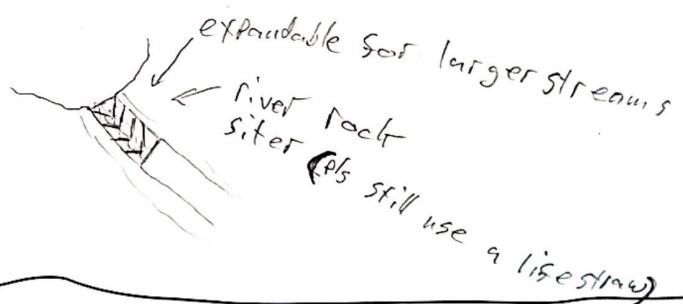 expandable for larger streams
river rock
sifer (pls still use a lifestraw)